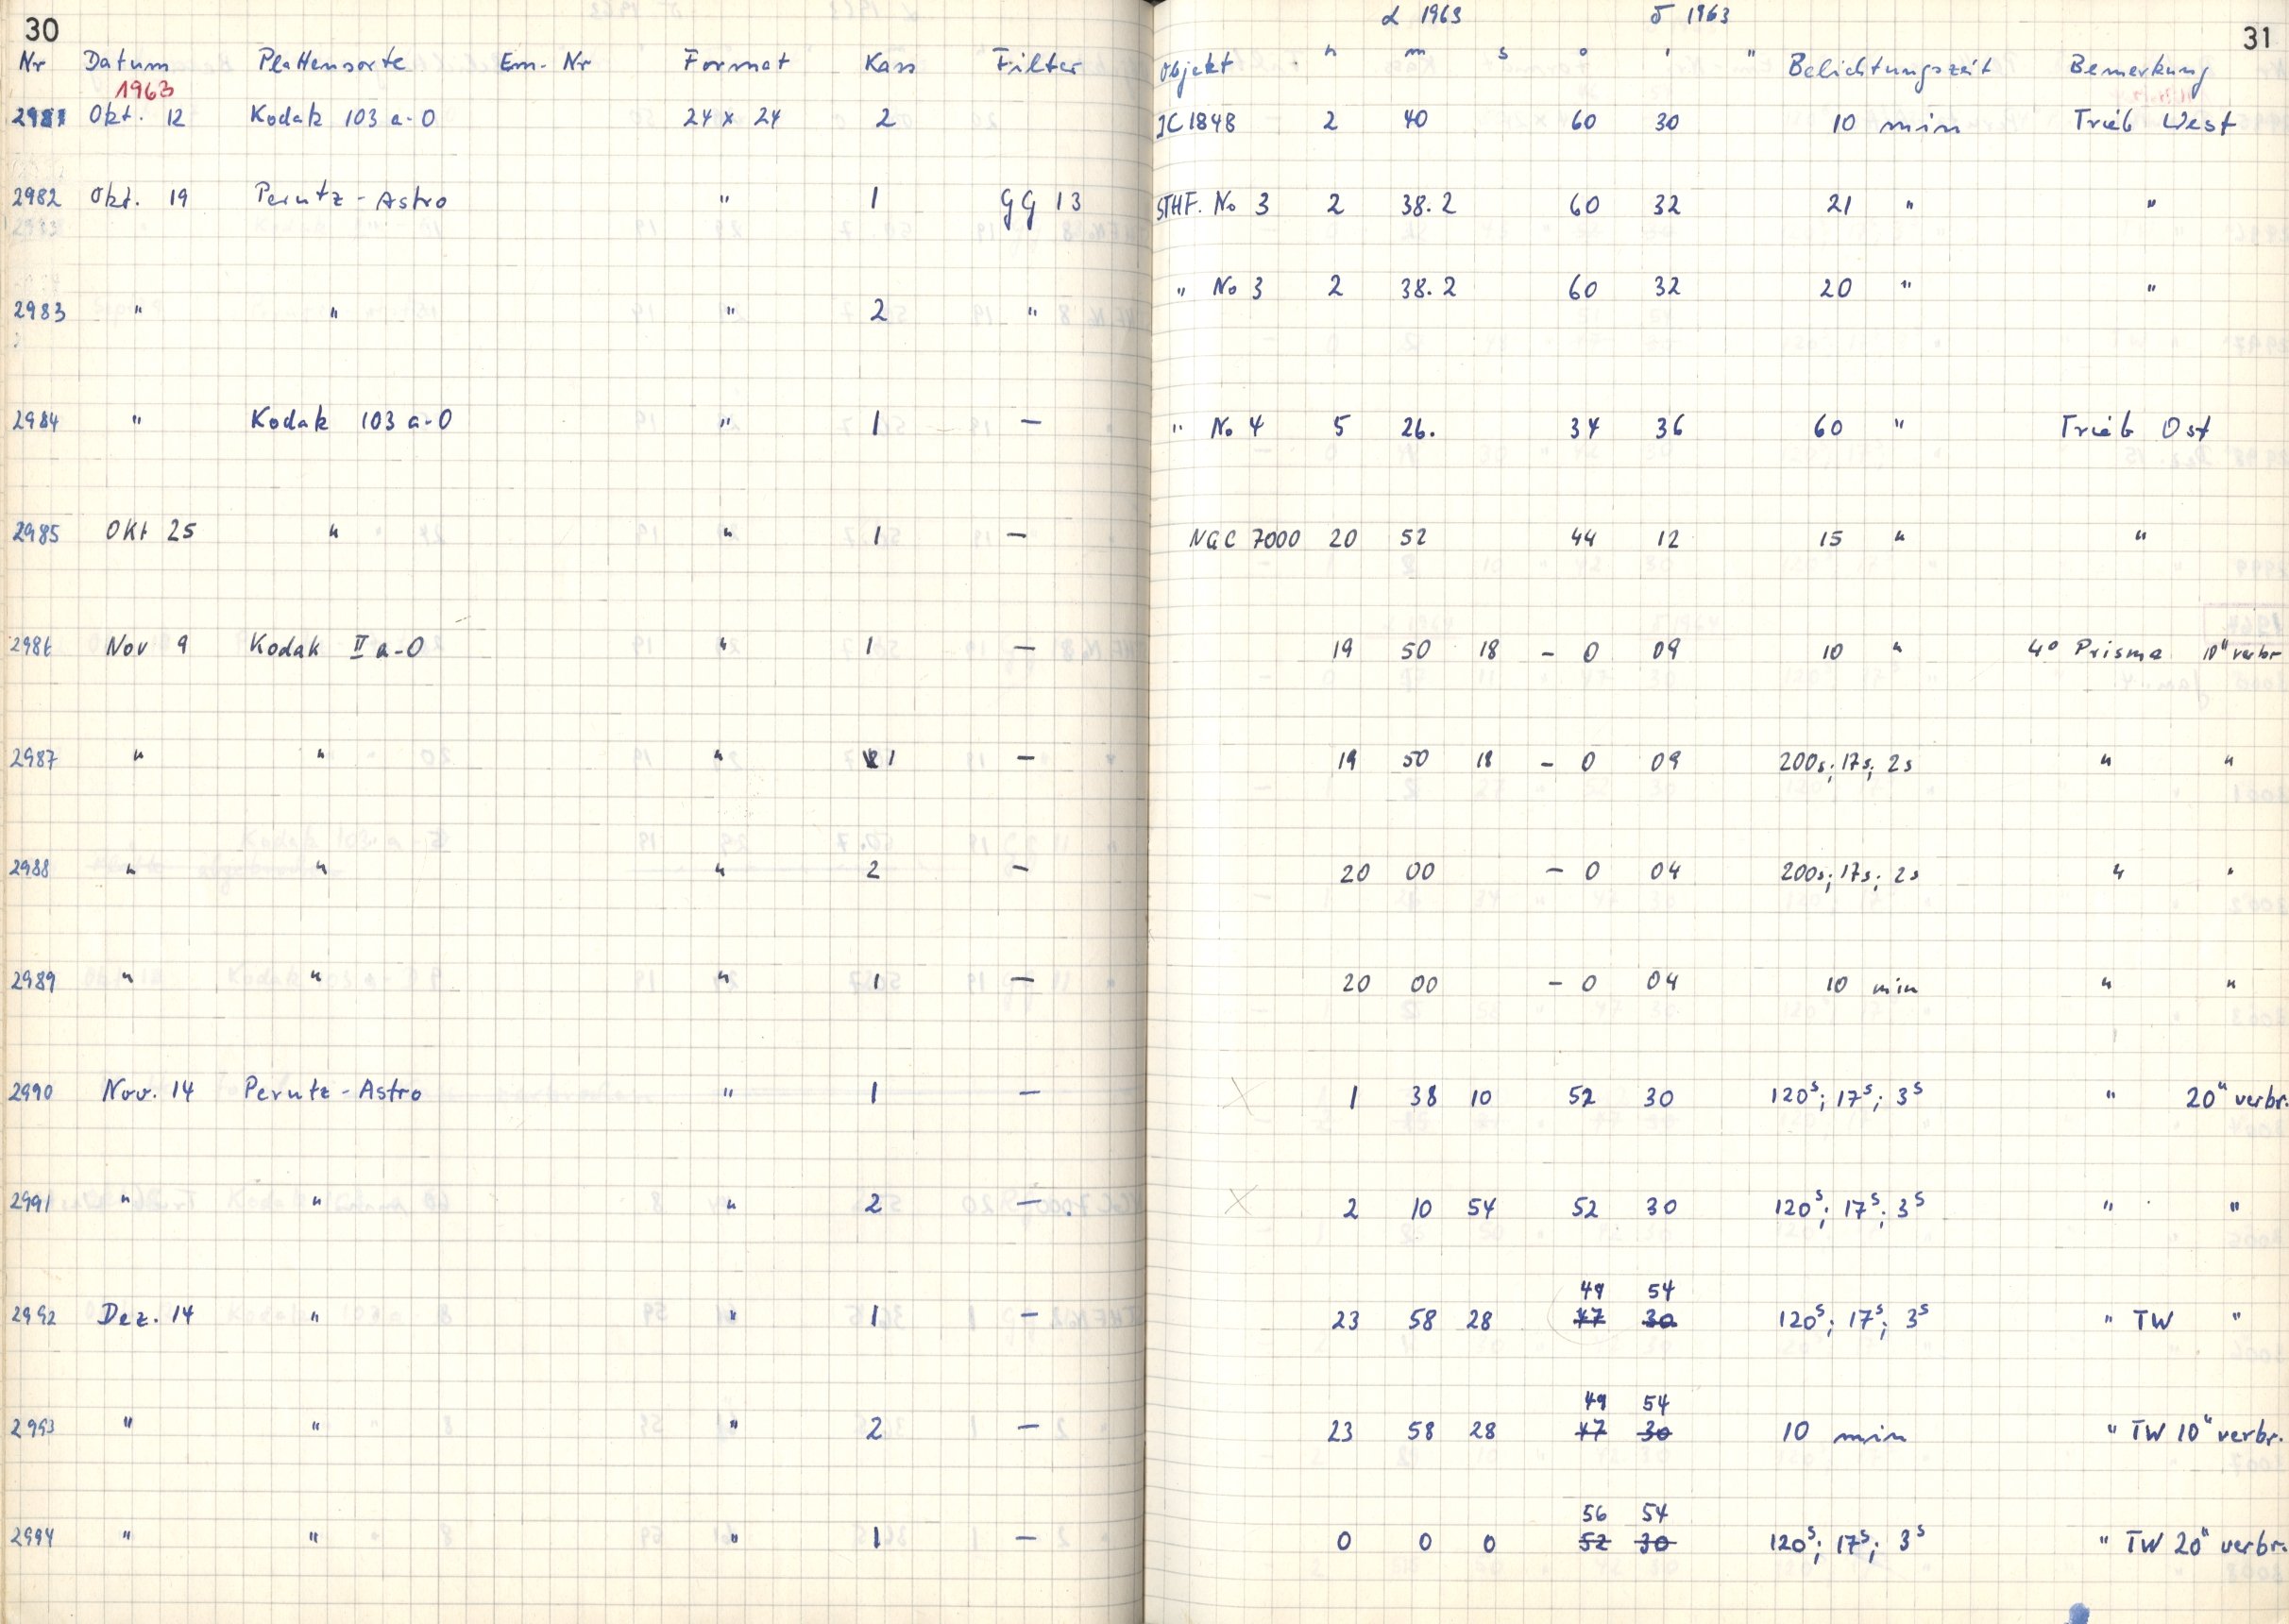 30
Nr Datum Plattensorte Em-Nr Format Kass Filter
1963
2981 Okt. 12 Kodak 103 a-O 24 x 24 2
2982 Okt. 19 Perutz-Astro " 1 GG 13
2983 " " " 2 "
2984 " Kodak 103 a-O " 1 —
2985 Okt 25 " " 1 —
2986 Nov 9 Kodak II a-O " 1 —
2987 " " " 1 —
2988 " " " 2 —
2989 " " " 1 —
2990 Nov. 14 Perutz-Astro " 1 —
2991 " " " 2 —
2992 Dez. 14 " " 1 —
2993 " " " 2 —
2994 " " " 1 —
α 1963 δ 1963 31
Objekt h m s ° ' " Belichtungszeit Bemerkung
IC 1848 2 40 60 30 10 min Trieb West
STHF. No 3 2 38.2 60 32 21 " "
" No 3 2 38.2 60 32 20 " "
" No 4 5 26. 34 36 60 " Trieb Ost
NGC 7000 20 52 44 12 15 " "
19 50 18 - 0 09 10 " 4° Prisma 10" verbr
19 50 18 - 0 09 200s; 17s; 2s " "
20 00 - 0 04 200s; 17s; 2s " "
20 00 - 0 04 10 min " "
X 1 38 10 52 30 120s; 17s; 3s " 20" verbr.
X 2 10 54 52 30 120s; 17s; 3s " "
49 54
23 58 28 47 30 120s; 17s; 3s " TW "
49 54
23 58 28 47 30 10 min " TW 10" verbr.
56 54
0 0 0 52 30 120s; 17s; 3s " TW 20" verbr.